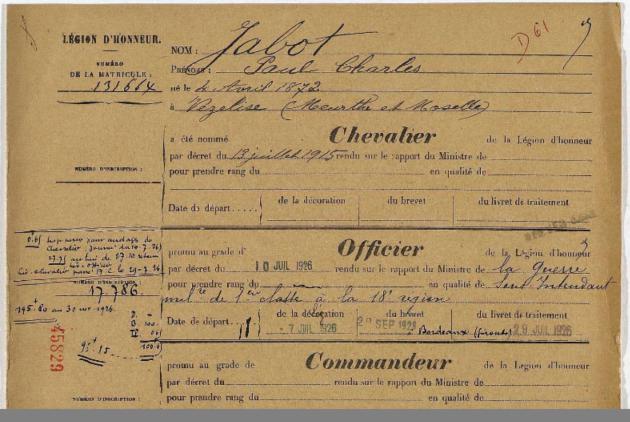 LÉGION D'HONNEUR.
NUMÉRO
DE LA MATRICULE :
131664
D 61
NOM : Jabot
Prénoms : Paul Charles
né le 4 Avril 1872
à Vézelise (Meurthe et Moselle)
a été nommé Chevalier de la Légion d'honneur
par décret du 13 juillet 1915 rendu sur le rapport du Ministre de
pour prendre rang du en qualité de
NUMÉRO D'INSCRIPTION :
Date de départ..... de la décoration du brevet du livret de traitement
promu au grade d' Officier de la Légion d'honneur
par décret du 10 JUIL 1926 rendu sur le rapport du Ministre de la Guerre
pour prendre rang du en qualité de Sous Intendant
mil re de 1ère classe à la 18e région
NUMÉRO D'INSCRIPTION :
17.786
Date de départ de la décoration du brevet du livret de traitement
7 JUIL 1926 SEP 1926 Bordeaux 29 JUIL 1926
45829
promu au grade de Commandeur de la Légion d'honneur
par décret du rendu sur le rapport du Ministre de
pour prendre rang du en qualité de
NUMÉRO D'INSCRIPTION :